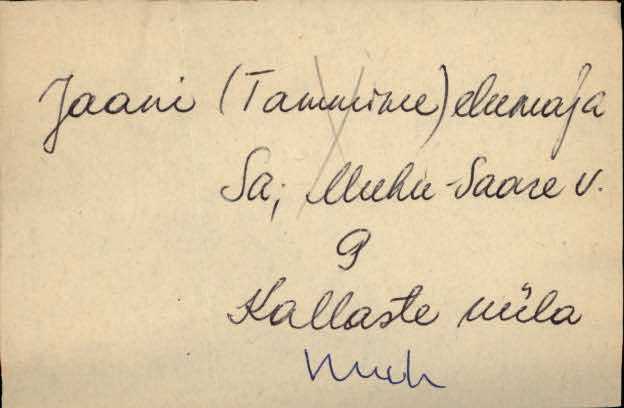 Jaani (Tammime) elumaja
Sa; Muhu-Saare v.
9
Kallaste küla
Muh